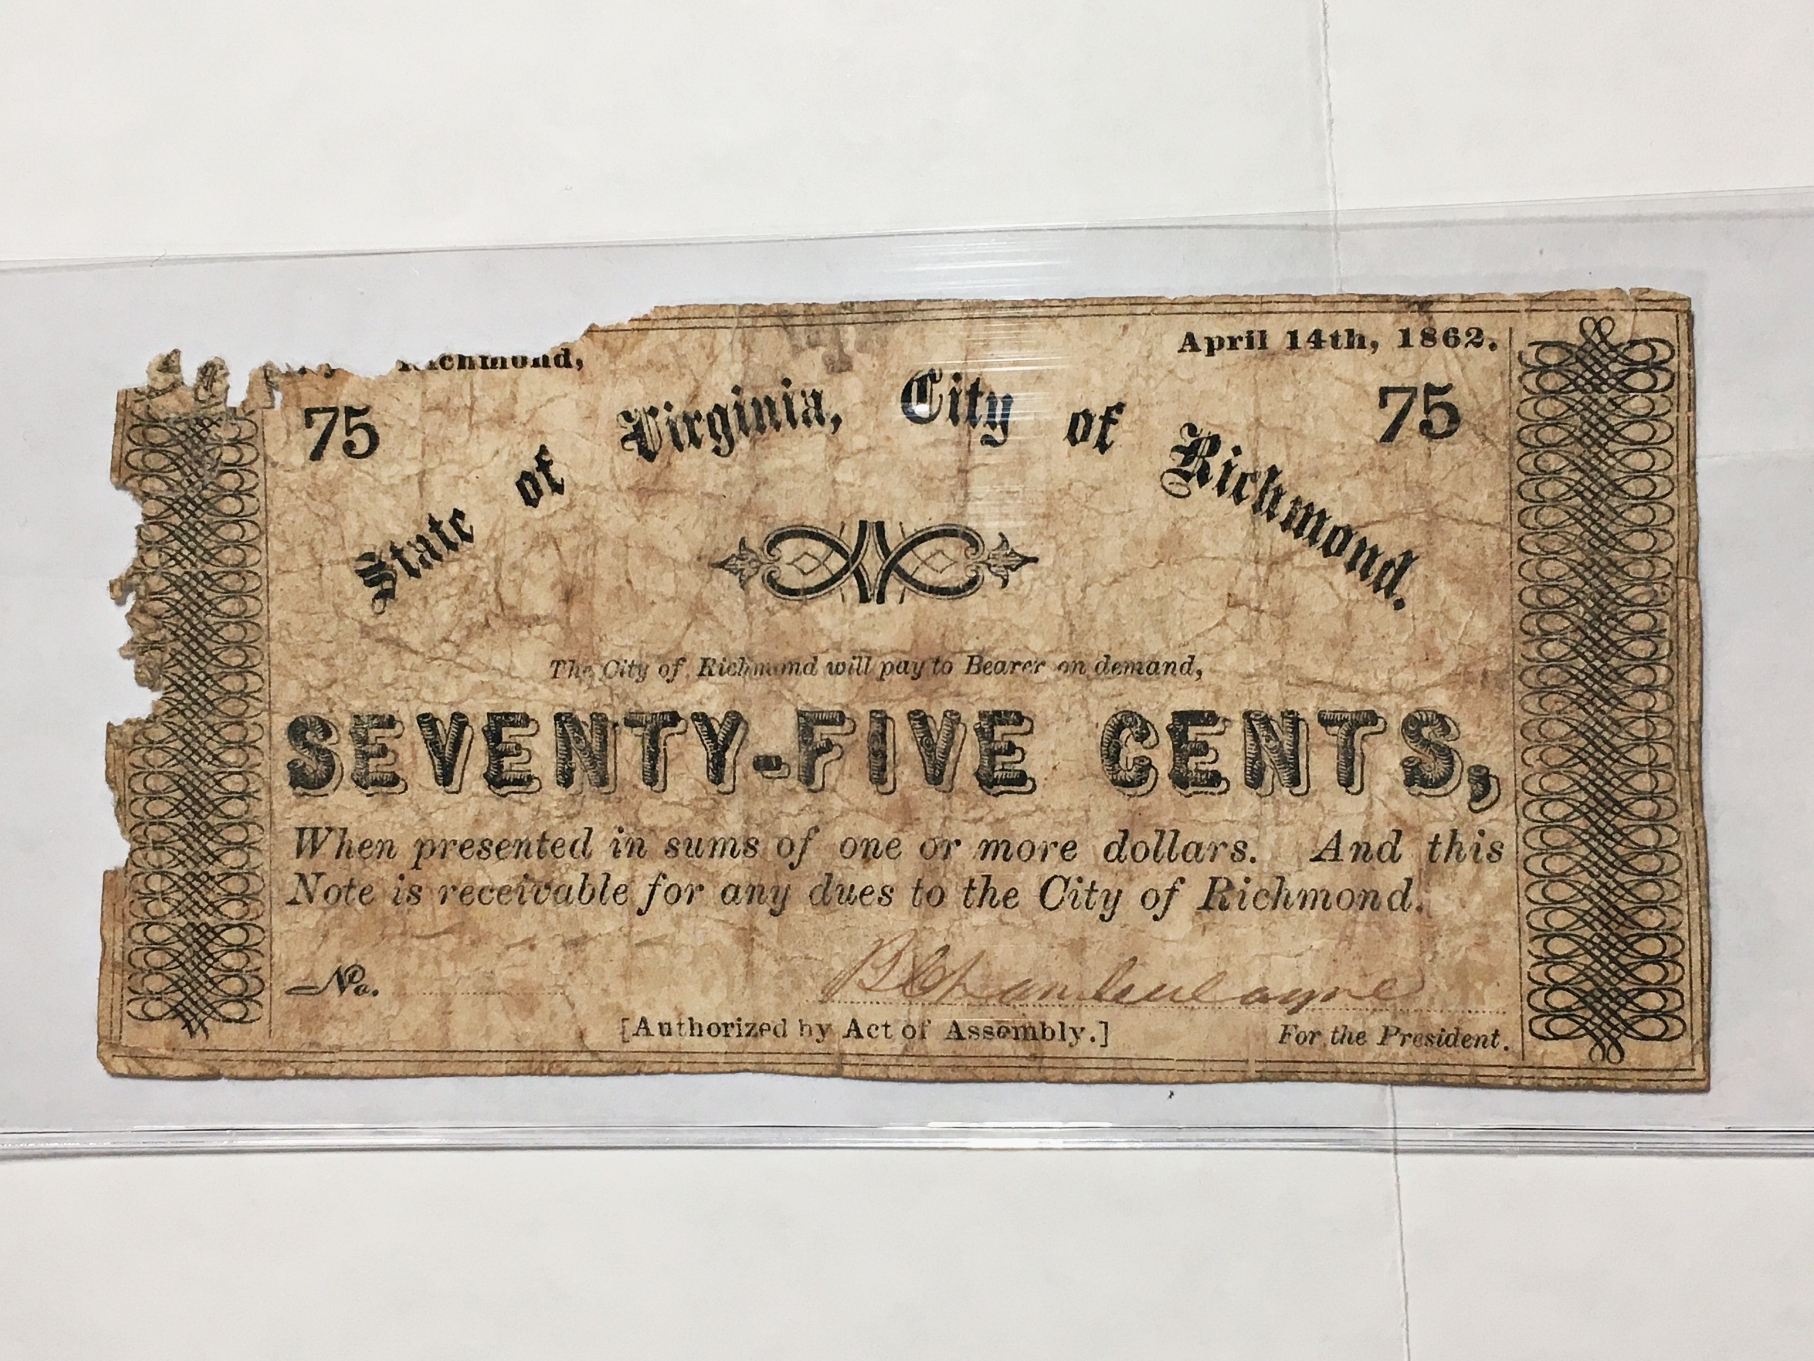 Richmond,
April 14th, 1862.
75
75
State of Virginia, City of Richmond.
The City of Richmond will pay to Bearer on demand,
SEVENTY-FIVE CENTS,
When presented in sums of one or more dollars. And this
Note is receivable for any dues to the City of Richmond.
No.
B Chamberlayne
[Authorized by Act of Assembly.]
For the President.